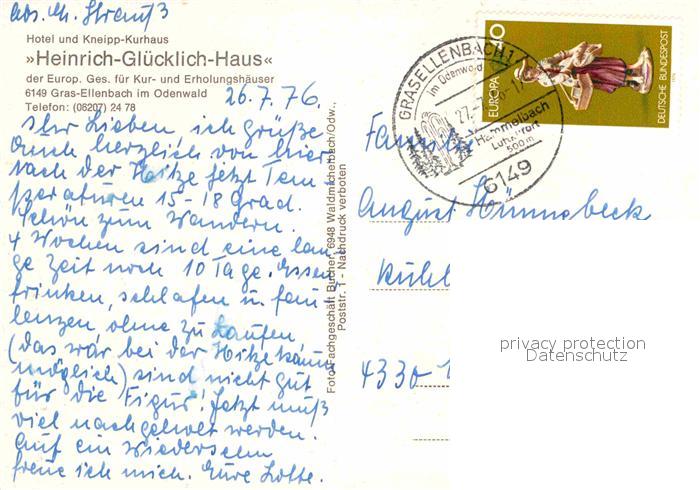 Abs. M. Strauß
Hotel und Kneipp-Kurhaus
»Heinrich-Glücklich-Haus«
der Europ. Ges. für Kur- und Erholungshäuser
6149 Gras-Ellenbach im Odenwald
Telefon: (06207) 24 78
26.7.76.
Ihr Lieben, ich grüße
Euch herzlich von hier
nach der Hitze jetzt Tem
peraturen 15-18 Grad.
Schön zum Wandern.
4 Wochen sind eine lan-
ge Zeit noch 10 Tage. Essen,
trinken, schlafen u. fau
lenzen, ohne zu Laufen
(das war bei der Hitze kaum
möglich) sind nicht gut
für die Figur! Jetzt muß
viel nachgeholt werden.
Auf ein Wiedersehn
freue ich mich. Eure Lotte.
Foto-Fachgeschäft Bucher, 6948 Waldmichelbach/Odw.,
Poststr. 1 - Nachdruck verboten
GRASELLENBACH 1
im Odenwald
27.
Hammelbach
Luftkurort
500 m
6149
EUROPA
DEUTSCHE BUNDESPOST
Familie
August Hünnebeck
4330
privacy protection
Datenschutz